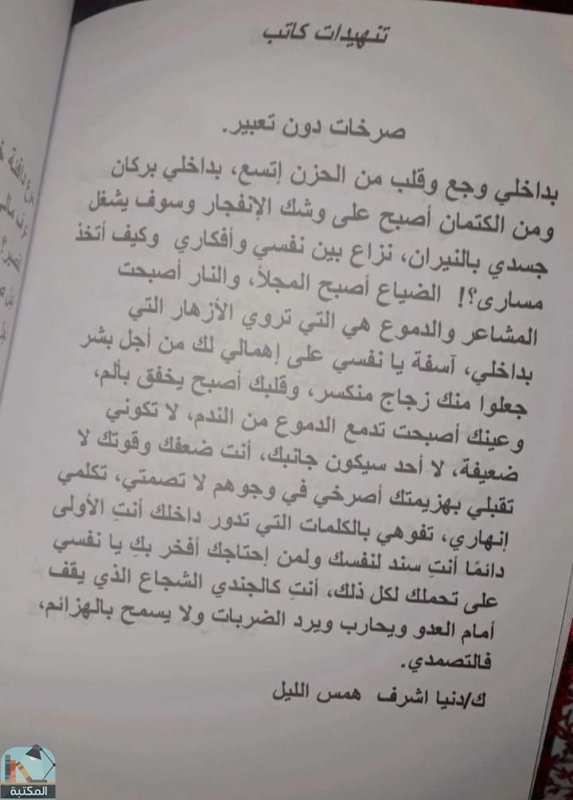 تنهيدات كاتب
صرخات دون تعبير.
بداخلي وجع وقلب من الحزن إتسع، بداخلي بركان
ومن الكتمان أصبح على وشك الإنفجار وسوف يشغل
جسدي بالنيران، نزاع بين نفسي وأفكاري وكيف أتخذ
مساري؟! الضياع أصبح المجلأ، والنار أصبحت
المشاعر والدموع هي التي تروي الأزهار التي
بداخلي، آسفة يا نفسي على إهمالي لك من أجل بشر
جعلوا منك زجاج منكسر، وقلبك أصبح يخفق بألم،
وعينك أصبحت تدمع الدموع من الندم، لا تكوني
ضعيفة، لا أحد سيكون جانبك، أنت ضعفك وقوتك لا
تقبلي بهزيمتك أصرخي في وجوهم لا تصمتي، تكلمي
إنهاري، تفوهي بالكلمات التي تدور داخلك أنتِ الأولى
دائمًا أنتِ سند لنفسك ولمن إحتاجك أفخر بكِ يا نفسي
على تحملك لكل ذلك، أنتِ كالجندي الشجاع الذي يقف
أمام العدو ويحارب ويرد الضربات ولا يسمح بالهزائم،
فالتصمدي.
ك/دنيا اشرف همس الليل
المكتبة